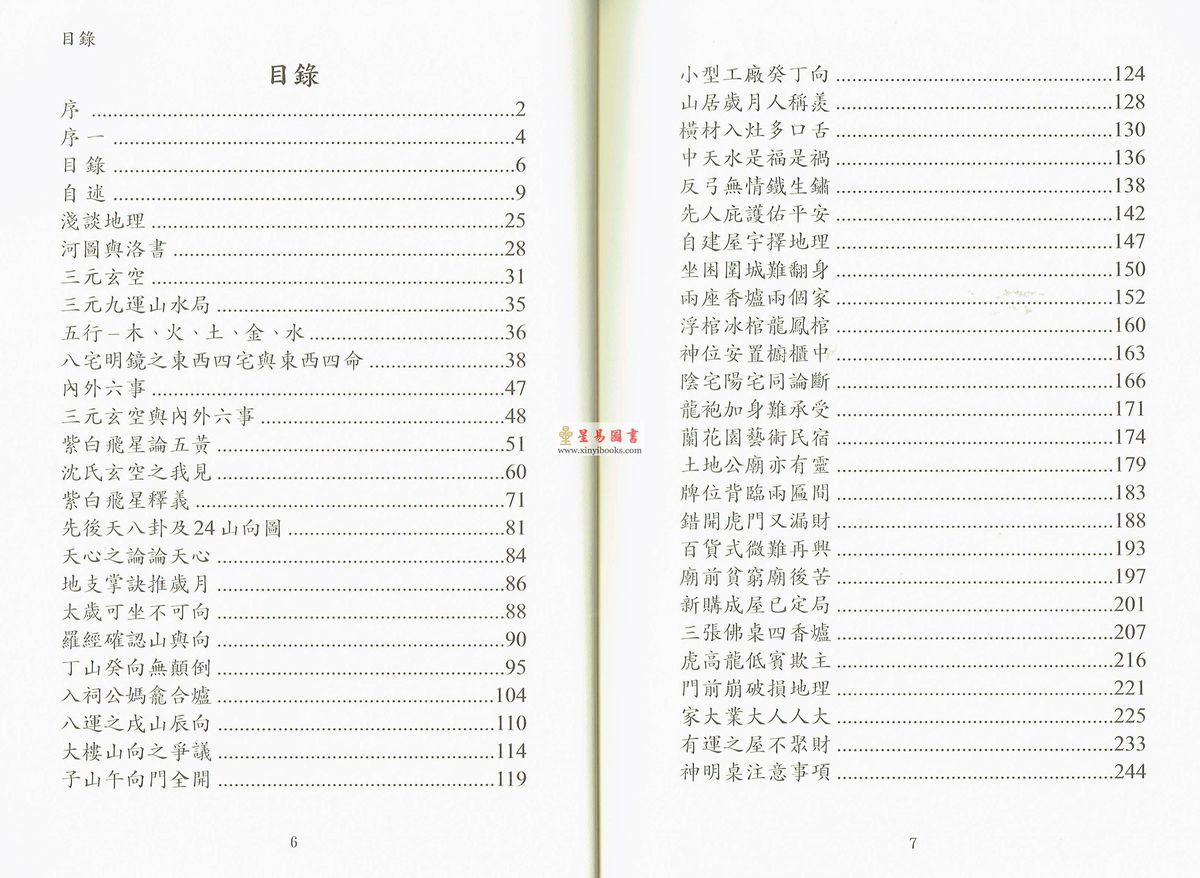 目錄
目錄
序 ..... 2
序一 ..... 4
目錄 ..... 6
自述 ..... 9
淺談地理 ..... 25
河圖與洛書 ..... 28
三元玄空 ..... 31
三元九運山水局 ..... 35
五行–木、火、土、金、水 ..... 36
八宅明鏡之東西四宅與東西四命 ..... 38
內外六事 ..... 47
三元玄空與內外六事 ..... 48
紫白飛星論五黃 ..... 51
沈氏玄空之我見 ..... 60
紫白飛星釋義 ..... 71
先後天八卦及24山向圖 ..... 81
天心之論論天心 ..... 84
地支掌訣推歲月 ..... 86
太歲可坐不可向 ..... 88
羅經確認山與向 ..... 90
丁山癸向無顛倒 ..... 95
入祠公媽龕合爐 ..... 104
八運之戌山辰向 ..... 110
大樓山向之爭議 ..... 114
子山午向門全開 ..... 119
6
小型工廠癸丁向 ..... 124
山居歲月人稱羨 ..... 128
橫材入灶多口舌 ..... 130
中天水是福是禍 ..... 136
反弓無情鐵生鏽 ..... 138
先人庇護佑平安 ..... 142
自建屋宇擇地理 ..... 147
坐困圍城難翻身 ..... 150
兩座香爐兩個家 ..... 152
浮棺冰棺龍鳳棺 ..... 160
神位安置櫥櫃中 ..... 163
陰宅陽宅同論斷 ..... 166
龍袍加身難承受 ..... 171
蘭花園藝術民宿 ..... 174
土地公廟亦有靈 ..... 179
牌位背臨兩匾間 ..... 183
錯開虎門又漏財 ..... 188
百貨式微難再興 ..... 193
廟前貧窮廟後苦 ..... 197
新購成屋已定局 ..... 201
三張佛桌四香爐 ..... 207
虎高龍低賓欺主 ..... 216
門前崩破損地理 ..... 221
家大業大人人大 ..... 225
有運之屋不聚財 ..... 233
神明桌注意事項 ..... 244
7
星易圖書
www.xinyibooks.com